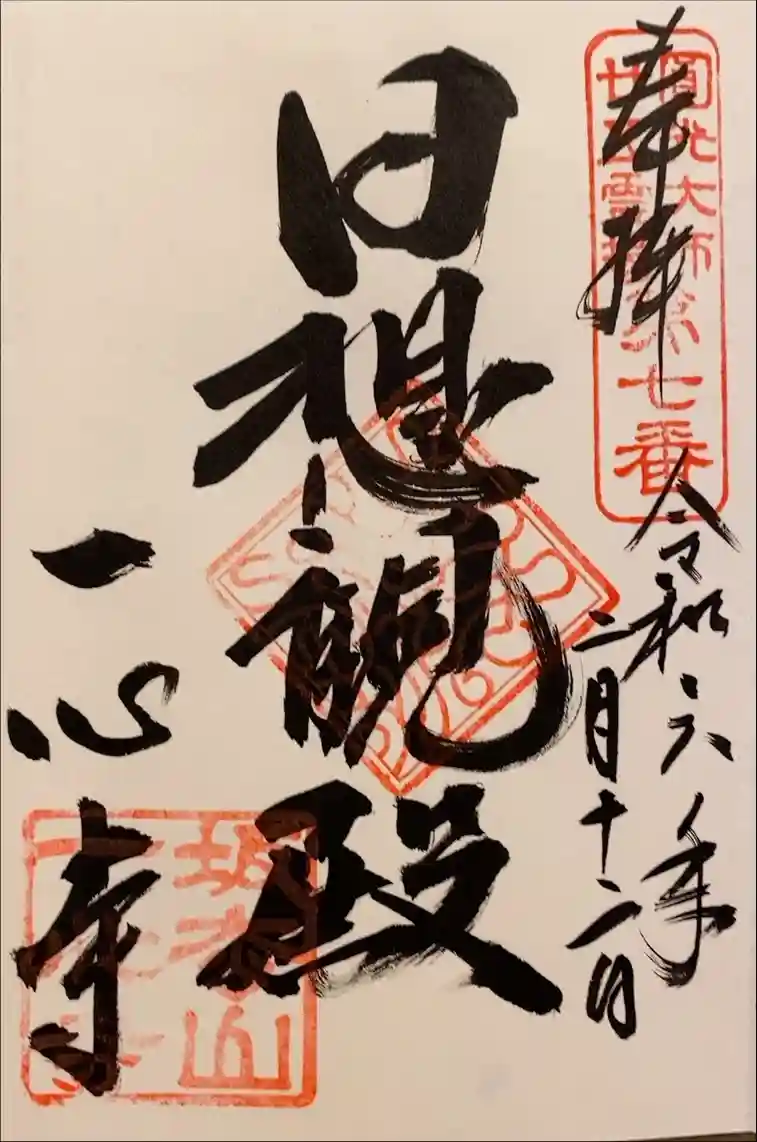 奉拝
圓光大師
廿五霊場第七番
令和六年
二月十二日
日想観殿
一心寺
坂松山
一心寺